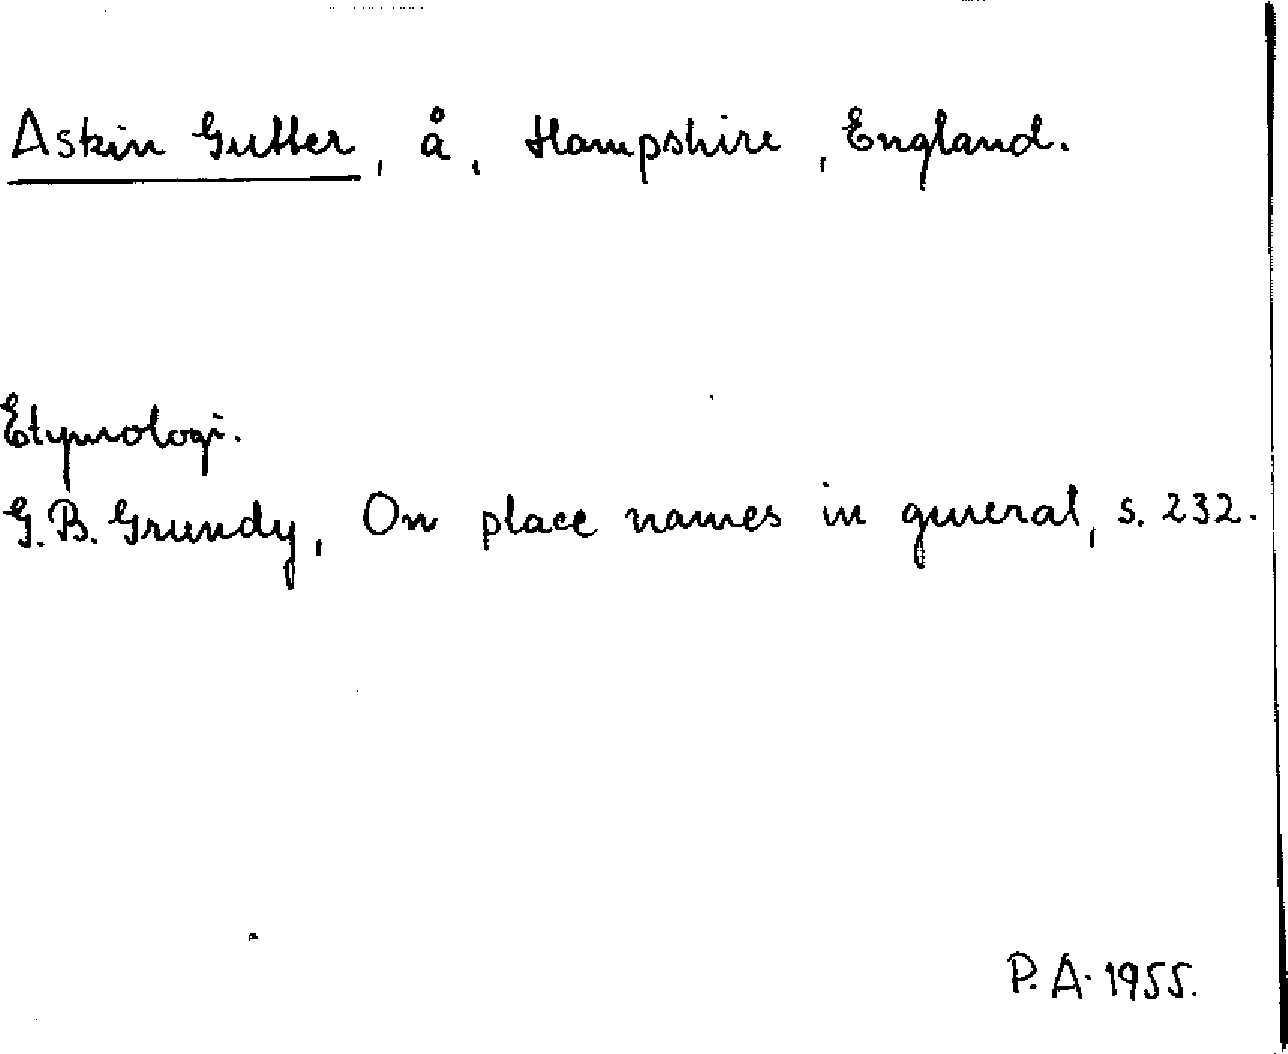 Askin Gutter, å, Hampshire, England.
Etymologi.
G.B. Grundy, On place names in general, s. 232.
P.A. 1955.